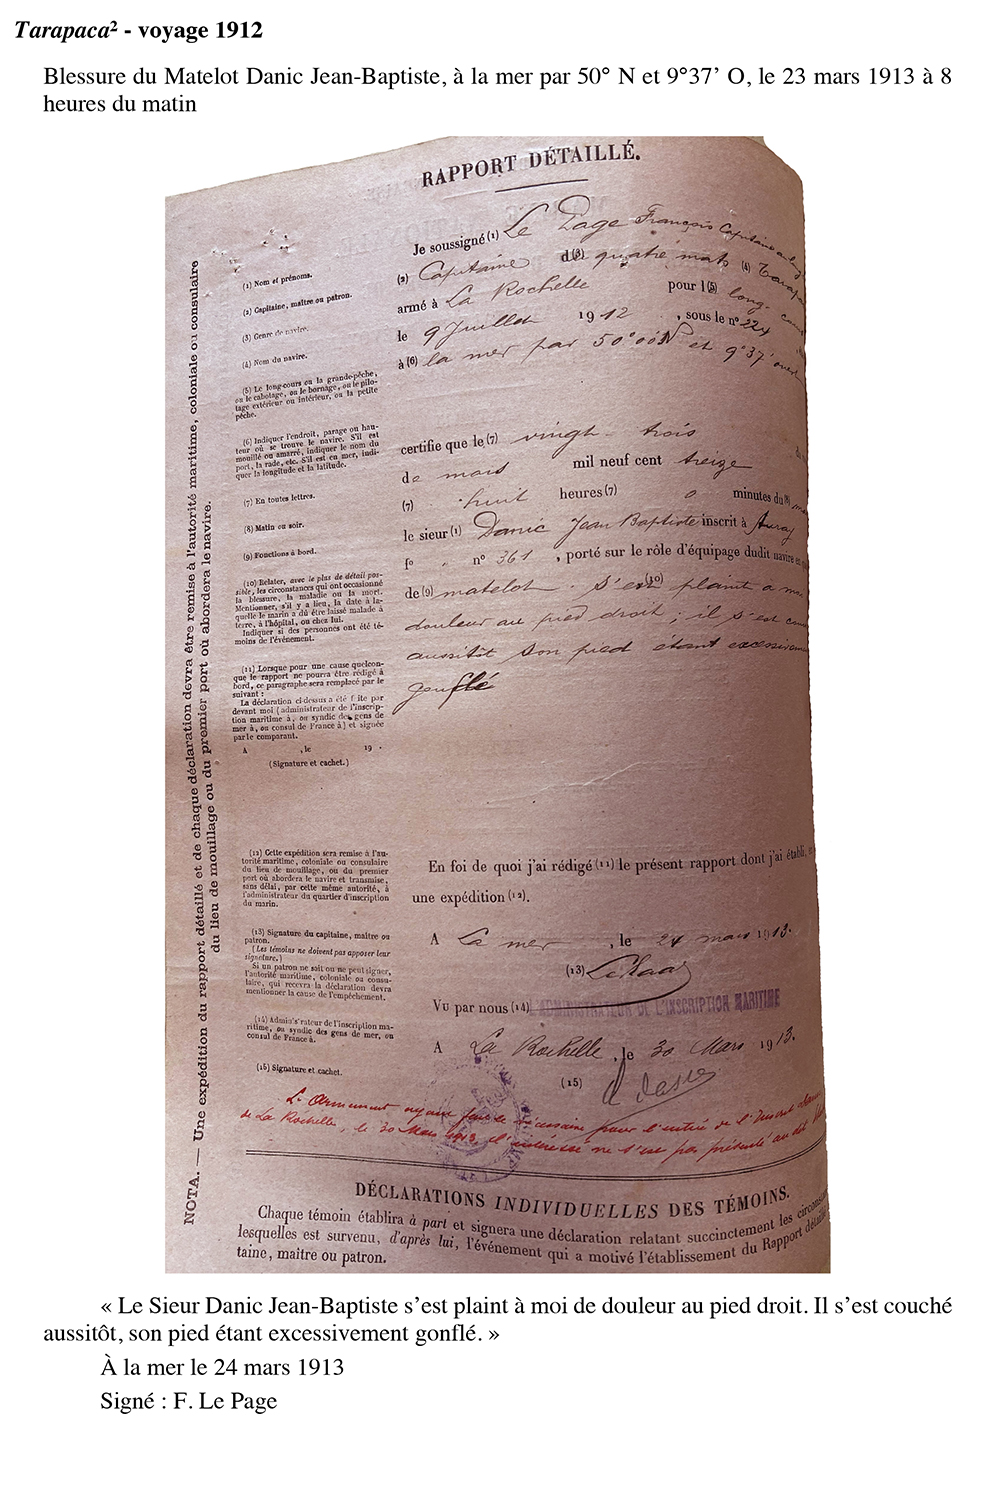 Tarapaca² - voyage 1912
Blessure du Matelot Danic Jean-Baptiste, à la mer par 50° N et 9°37’ O, le 23 mars 1913 à 8
heures du matin
RAPPORT DÉTAILLÉ.
Je soussigné (1) Le Page François Capitaine au long
(2) Capitaine du (3) quatre mats (4) Tarapa
armé à La Rochelle pour l (5) long-cours
le 9 Juillet 1912, sous le n° 224
à (6) la mer par 50°00 N et 9°37' ouest
certifie que le (7) vingt-trois
de mars mil neuf cent treize
(7) huit heures (7) 0 minutes du (8) ma
le sieur (1) Danic Jean Baptiste inscrit à Auray
f° n° 361, porté sur le rôle d'équipage dudit navire en
de (9) matelot (10) S'est plaint a moi
douleur au pied droit, il s'est cou
aussitôt son pied étant excessivem
gonflé
(1) Nom et prénoms.
(2) Capitaine, maître ou patron.
(3) Genre de navire.
(4) Nom du navire.
(5) Le long-cours ou la grande-pêche,
ou le cabotage, ou le bornage, ou le pilo-
tage extérieur ou intérieur, ou la petite
pêche.
(6) Indiquer l'endroit, parage ou hau-
teur où se trouve le navire. S'il est
mouillé ou amarré, indiquer le nom du
port, la rade, etc. S'il est en mer, indi-
quer la longitude et la latitude.
(7) En toutes lettres.
(8) Matin ou soir.
(9) Fonctions à bord.
(10) Relater, avec le plus de détail pos-
sible, les circonstances qui ont occasionné
la blessure, la maladie ou la mort.
Mentionner, s'il y a lieu, la date à la-
quelle le marin a dû être laissé malade à
terre, à l'hôpital, ou chez lui.
Indiquer si des personnes ont été té-
moins de l'événement.
(11) Lorsque pour une cause quelcon-
que le rapport ne pourra être rédigé à
bord, ce paragraphe sera remplacé par le
suivant :
La déclaration ci-dessus a été faite par
devant moi (administrateur de l'inscrip-
tion maritime à, ou syndic des gens de
mer à, ou consul de France à) et signée
par le comparant.
A , le 19 .
(Signature et cachet.)
(12) Cette expédition sera remise à l'au-
torité maritime, coloniale ou consulaire
du lieu de mouillage, ou du premier
port où abordera le navire et transmise,
sans délai, par cette même autorité, à
l'administrateur du quartier d'inscription
du marin.
(13) Signature du capitaine, maître ou
patron.
(Les témoins ne doivent pas apposer leur
signature.)
Si un patron ne sait ou ne peut signer,
l'autorité maritime, coloniale ou consu-
laire, qui recevra la déclaration devra
mentionner la cause de l'empêchement.
(14) Administrateur de l'inscription ma-
ritime, ou syndic des gens de mer, ou
consul de France à.
(15) Signature et cachet.
NOTA. — Une expédition du rapport détaillé et de chaque déclaration devra être remise à l'autorité maritime, coloniale ou consulaire
du lieu de mouillage ou du premier port où abordera le navire.
En foi de quoi j'ai rédigé (11) le présent rapport dont j'ai établi,
une expédition (12).
A La mer, le 24 mars 1913.
(13) Le Page
Vu par nous (14) L'ADMINISTRATEUR DE L'INSCRIPTION MARITIME
A La Rochelle, le 30 Mars 1913.
(15)
L'Armement ayant fait le nécessaire pour l'entrée de l'
de La Rochelle, le 30 Mars 1913, l'intéressé ne s'est pas présenté au dit
DÉCLARATIONS INDIVIDUELLES DES TÉMOINS.
Chaque témoin établira à part et signera une déclaration relatant succinctement les circons
lesquelles est survenu, d'après lui, l'événement qui a motivé l'établissement du Rapport détaillé
taine, maître ou patron.
« Le Sieur Danic Jean-Baptiste s’est plaint à moi de douleur au pied droit. Il s’est couché
aussitôt, son pied étant excessivement gonflé. »
À la mer le 24 mars 1913
Signé : F. Le Page